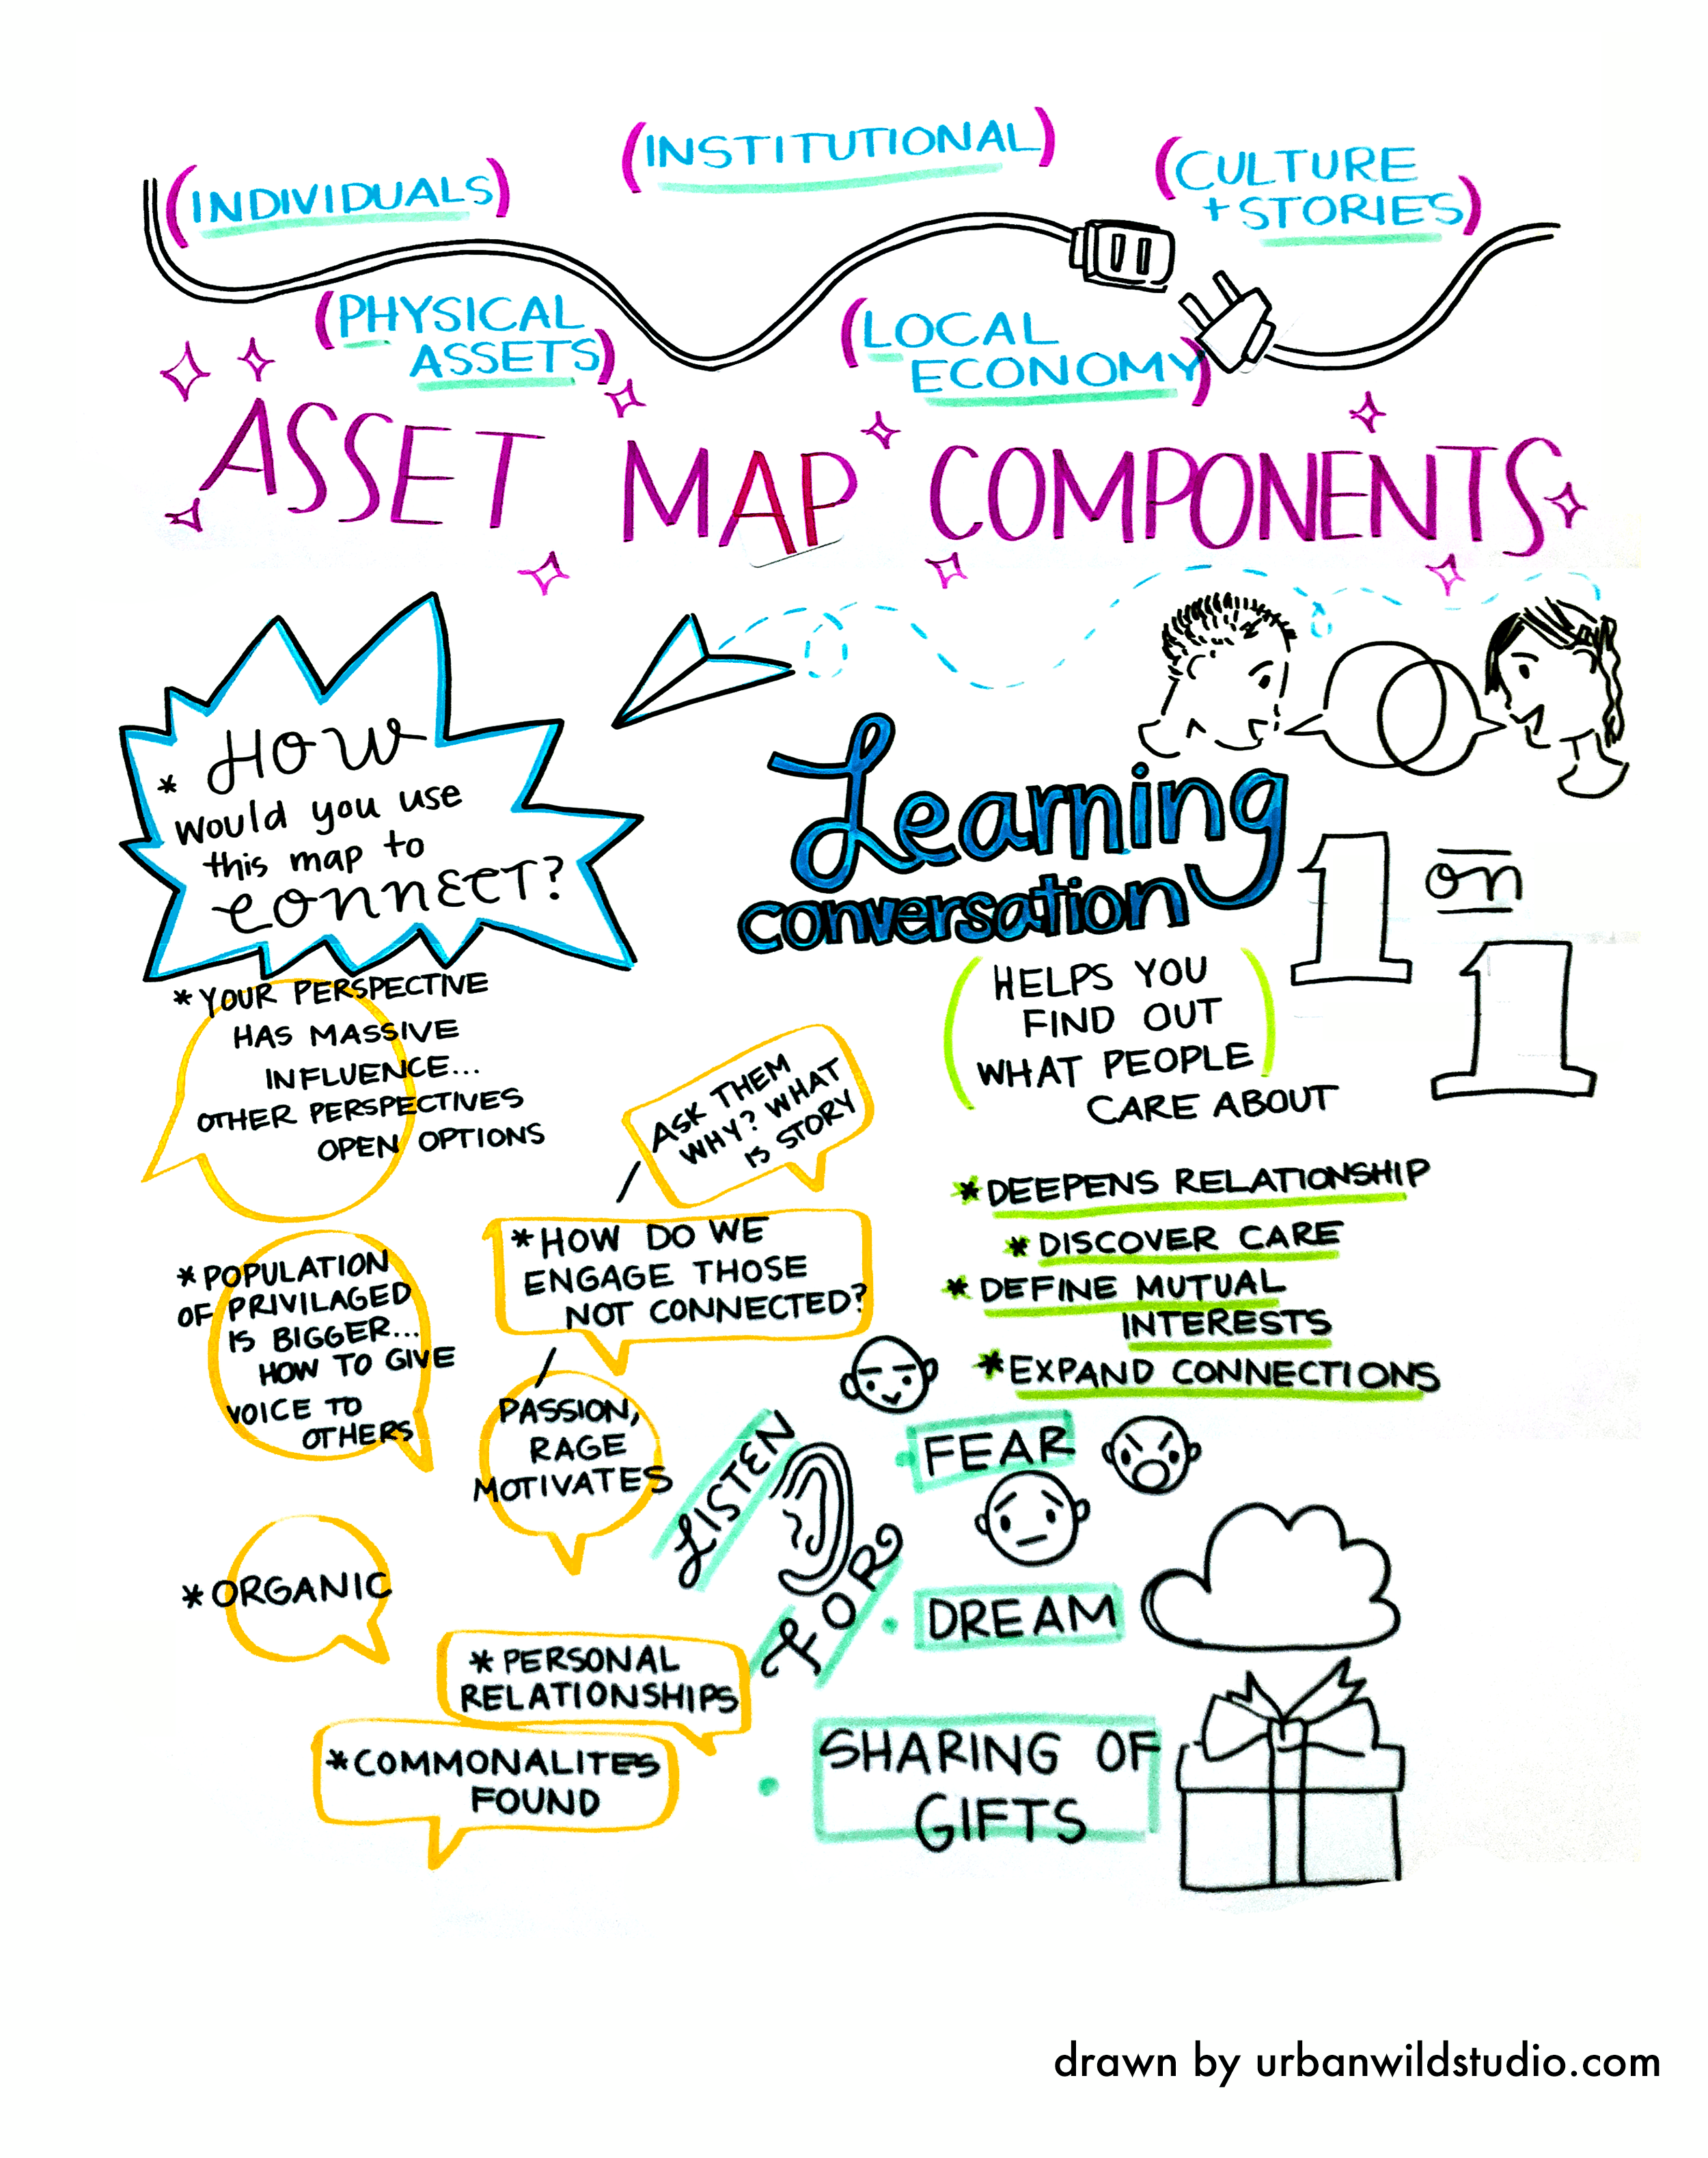 (INDIVIDUALS)
(INSTITUTIONAL)
(CULTURE
+ STORIES)
(PHYSICAL
ASSETS)
(LOCAL
ECONOMY)
ASSET MAP COMPONENTS
* HOW
would you use
this map to
CONNECT?
Learning
conversation
1 on
1
(HELPS YOU
FIND OUT
WHAT PEOPLE)
CARE ABOUT
* YOUR PERSPECTIVE
HAS MASSIVE
INFLUENCE...
OTHER PERSPECTIVES
OPEN OPTIONS
ASK THEM
WHY? WHAT
IS STORY
* HOW DO WE
ENGAGE THOSE
NOT CONNECTED?
* POPULATION
OF PRIVILAGED
IS BIGGER...
HOW TO GIVE
VOICE TO
OTHERS
PASSION,
RAGE
MOTIVATES
* ORGANIC
* PERSONAL
RELATIONSHIPS
* COMMONALITES
FOUND
* DEEPENS RELATIONSHIP
* DISCOVER CARE
* DEFINE MUTUAL
INTERESTS
* EXPAND CONNECTIONS
LISTEN
FOR
• FEAR
• DREAM
• SHARING OF
GIFTS
drawn by urbanwildstudio.com